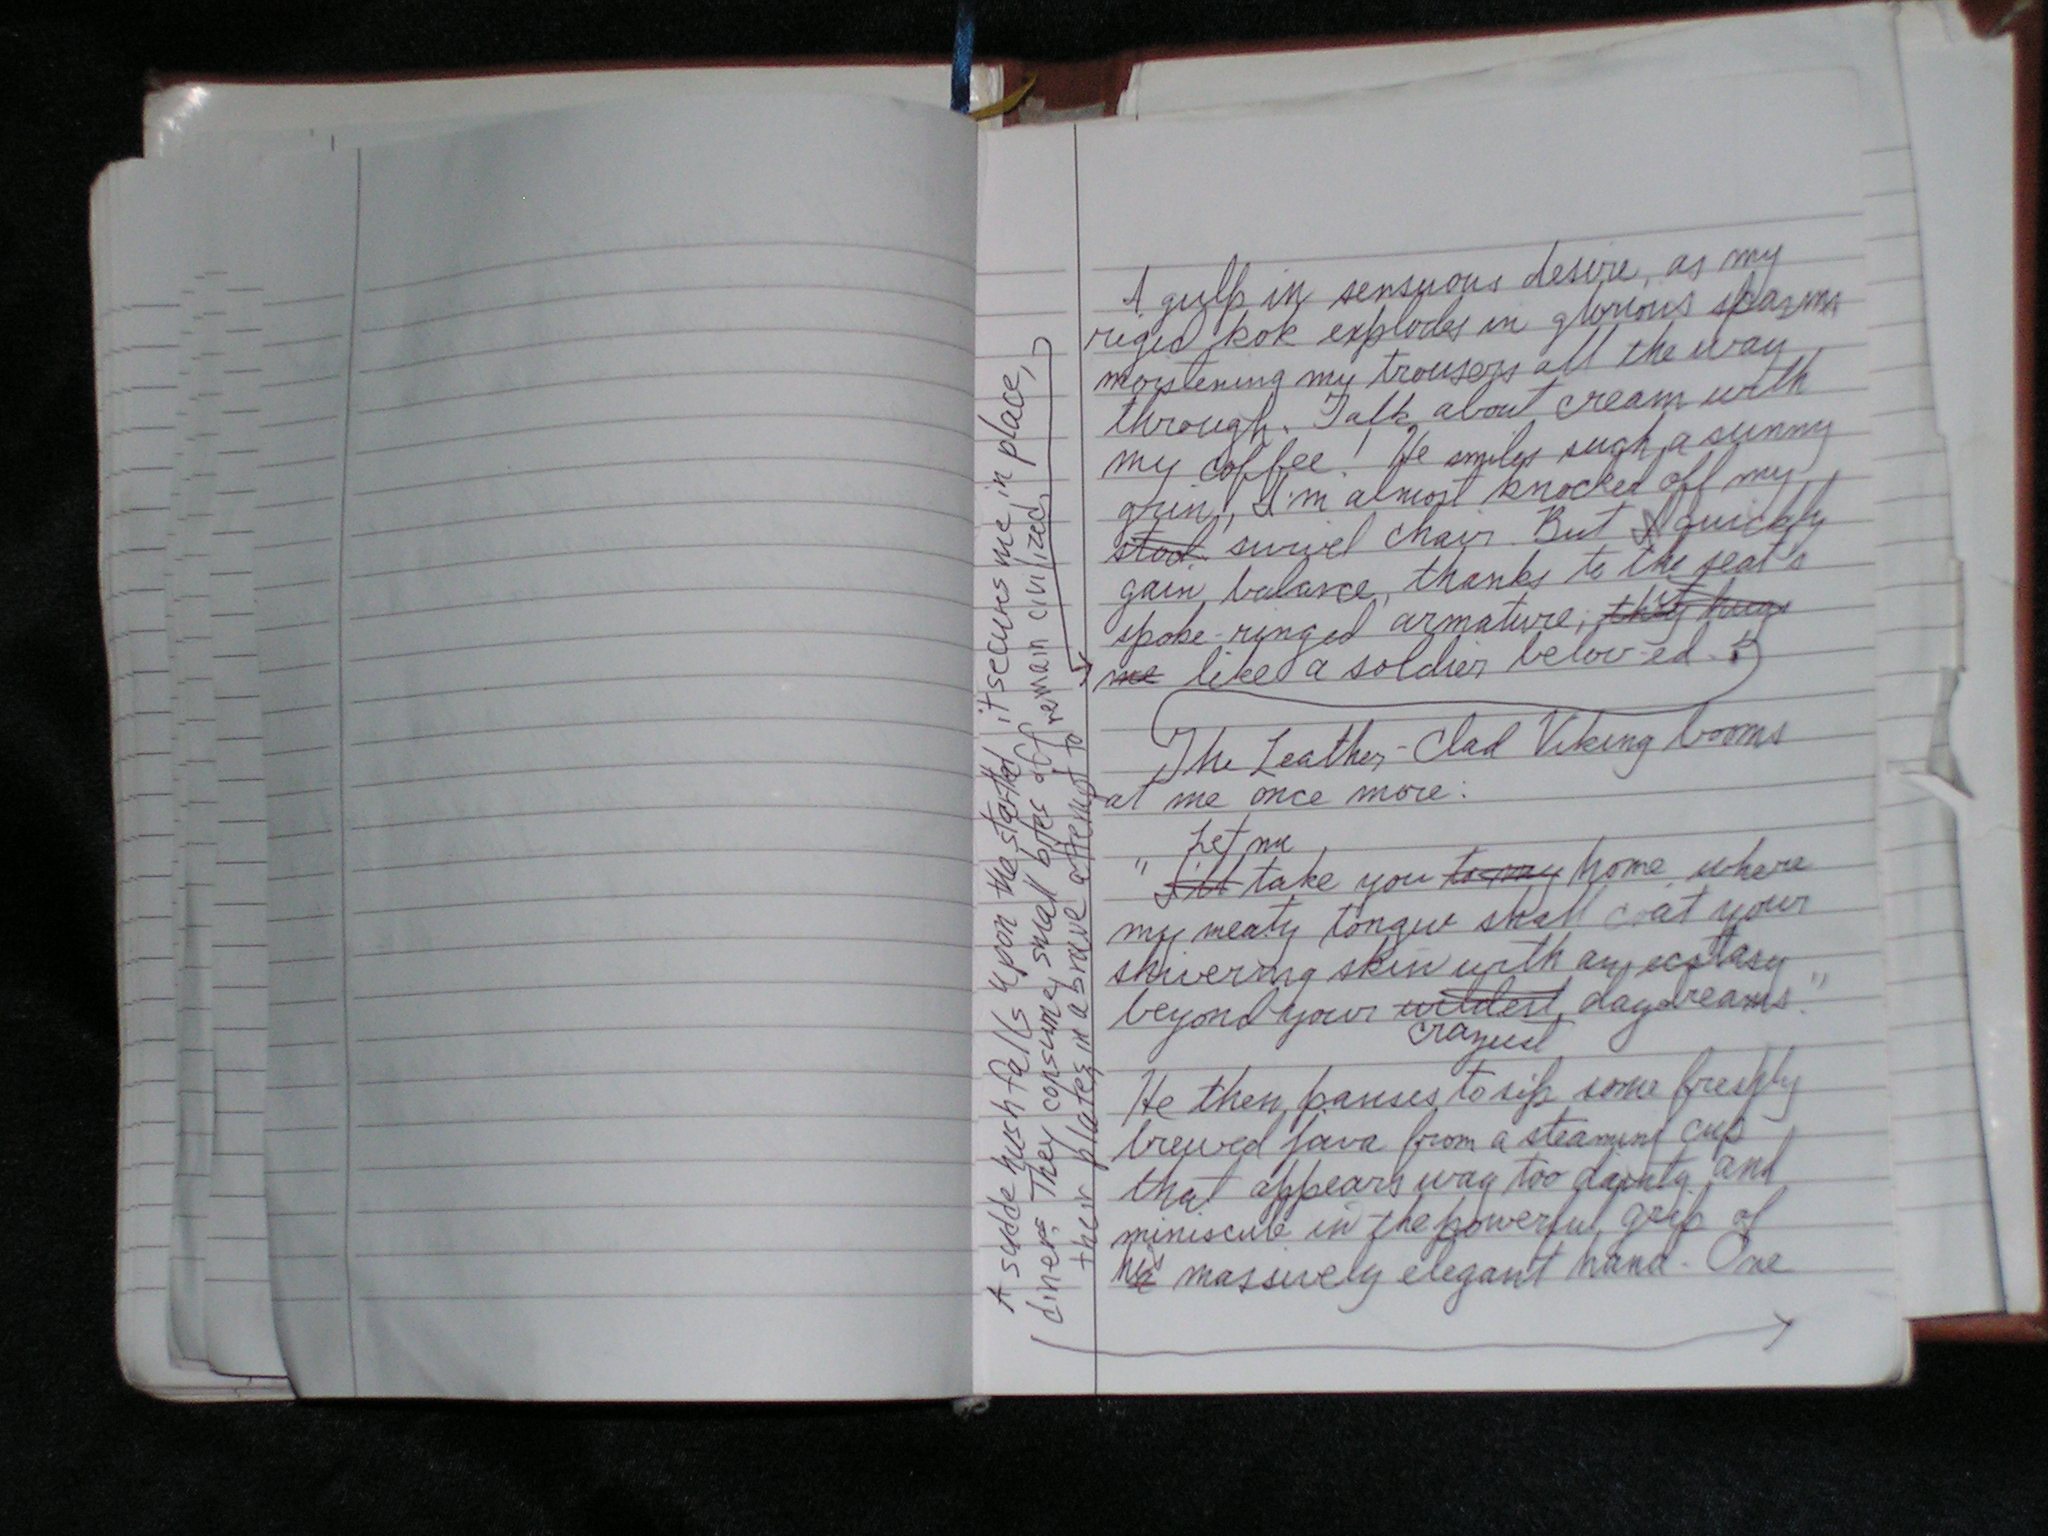 A gulp in sensuous desire, as my
riged kok explodes in glorious spasms
moistening my trousers all the way
through. Talk about cream with
my coffee! He smiles such a sunny
grin, I'm almost knocked off my
stool swivel chair. But I quickly
gain balance, thanks to the seat's
spoke-ringed armature, hugs
me like a soldier belov-ed.
it secures me in place,
The Leather-Clad Viking booms
at me once more:
Let me
"I'll take you to my home, where
my meaty tongue shall coat your
shivering skin with an ecstasy
beyond your wildest daydreams."
craziest
He then pauses to sip some freshly
brewed java from a steaming cup
that appears way too dainty and
miniscule in the powerful grip of
his massively elegant hand. One
A sudde hush falls upon the startled
diners. They consume small bites of
their plates, in a brave attempt to
remain civilized